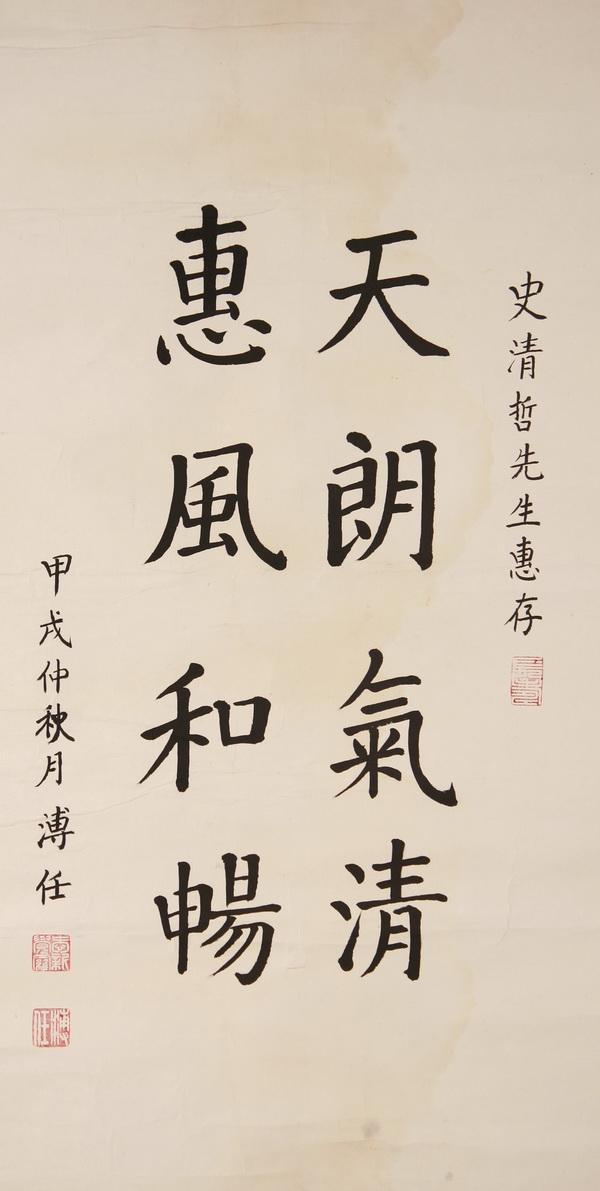 史清哲先生惠存
天朗氣清
惠風和暢
甲戌仲秋月溥任
溥任